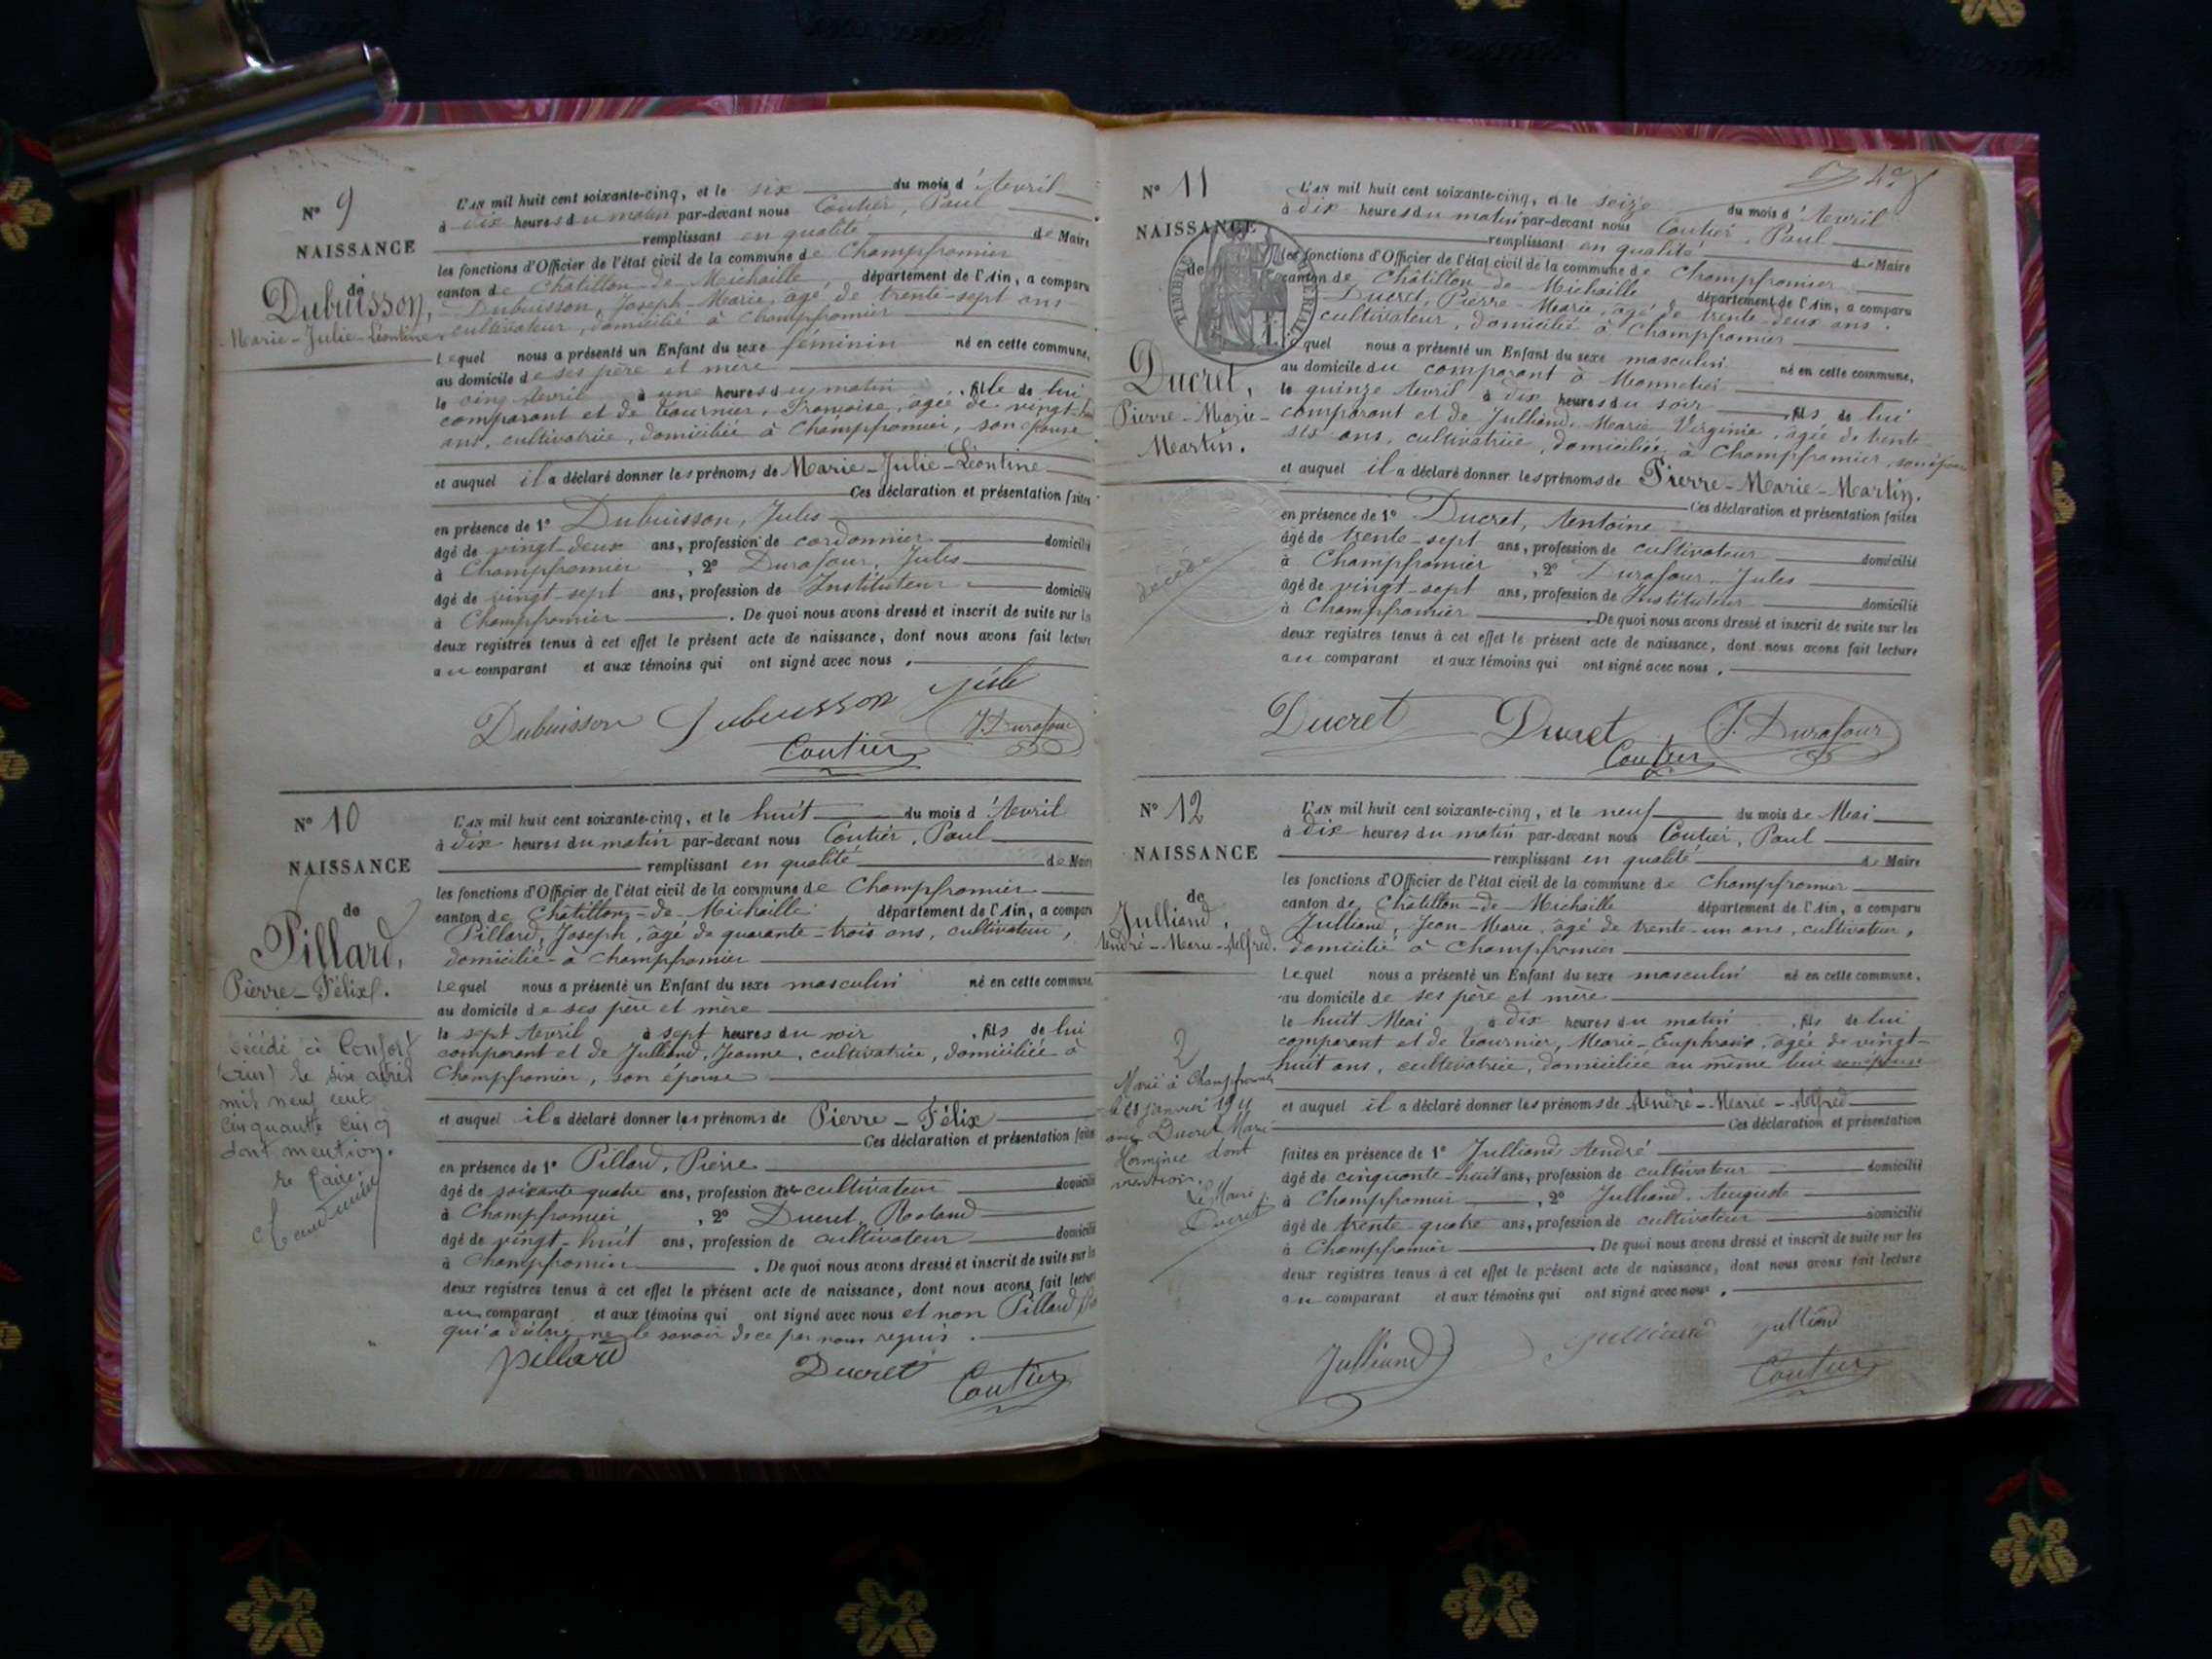 N° 9
NAISSANCE
de
Dubuisson,
Marie-Julie-Léontine.
L'AN mil huit cent soixante-cinq, et le six du mois d'Avril
à dix heures du matin par-devant nous Coutier, Paul
remplissant en qualité de Maire
les fonctions d'Officier de l'état civil de la commune de Champfromier
canton de Châtillon-de-Michaille, département de l'Ain, a comparu
Dubuisson, Joseph-Marie, âgé de trente-sept ans
cultivateur, domicilié à Champfromier
Lequel nous a présenté un Enfant du sexe féminin né en cette commune,
au domicile de ses père et mère
le cinq Avril à une heures du matin, fille de lui
comparant et de Tournier, Françoise, âgée de vingt-
ans, cultivatrice, domiciliée à Champfromier, son épouse
et auquel il a déclaré donner les prénoms de Marie-Julie-Léontine
Ces déclaration et présentation faites
en présence de 1° Dubuisson, Jules
âgé de vingt-deux ans, profession de cordonnier domicilié
à Champfromier, 2° Durafour, Jules
âgé de vingt-sept ans, profession de Instituteur domicilié
à Champfromier. De quoi nous avons dressé et inscrit de suite sur les
deux registres tenus à cet effet le présent acte de naissance, dont nous avons fait lecture
au comparant et aux témoins qui ont signé avec nous.
Dubuisson Dubuisson
J. Durafour
Coutier
N° 10
NAISSANCE
de
Pillard,
Pierre-Félix.
Décédé à Confort
(Ain) le six avril
mil neuf cent
cinquante cinq
dont mention.
Le Maire
L'AN mil huit cent soixante-cinq, et le huit du mois d'Avril
à dix heures du matin par-devant nous Coutier, Paul
remplissant en qualité de Maire
les fonctions d'Officier de l'état civil de la commune de Champfromier
canton de Châtillon-de-Michaille département de l'Ain, a comparu
Pillard, Joseph, âgé de quarante-trois ans, cultivateur,
domicilié à Champfromier
Lequel nous a présenté un Enfant du sexe masculin né en cette commune,
au domicile de ses père et mère
le sept Avril à sept heures du soir, fils de lui
comparant et de Julliand, Jeanne, cultivatrice, domiciliée à
Champfromier, son épouse
et auquel il a déclaré donner les prénoms de Pierre-Félix
Ces déclaration et présentation faites
en présence de 1° Pillard, Pierre
âgé de soixante quatre ans, profession de cultivateur domicilié
à Champfromier, 2° Ducret, Roland
âgé de vingt-huit ans, profession de cultivateur domicilié
à Champfromier. De quoi nous avons dressé et inscrit de suite sur les
deux registres tenus à cet effet le présent acte de naissance, dont nous avons fait lecture
au comparant et aux témoins qui ont signé avec nous et non Pillard
qui a déclaré ne le savoir de ce par nous requis.
Pillard Ducret Coutier
N° 11
NAISSANCE
de
TIMBRE IMPERIAL
Ducret,
Pierre-Marie-
Martin.
décédé
L'AN mil huit cent soixante-cinq, et le seize du mois d'Avril
à dix heures du matin par-devant nous Coutier, Paul
remplissant en qualité de Maire
les fonctions d'Officier de l'état civil de la commune de Champfromier
canton de Châtillon-de-Michaille département de l'Ain, a comparu
Ducret, Pierre-Marie, âgé de trente-deux ans,
cultivateur, domicilié à Champfromier
Lequel nous a présenté un Enfant du sexe masculin né en cette commune,
au domicile du comparant à Monnetier
le quinze Avril à dix heures du soir, fils de lui
comparant et de Julliand, Marie Virginie, âgée de trente
six ans, cultivatrice, domiciliée à Champfromier, son épouse
et auquel il a déclaré donner les prénoms de Pierre-Marie-Martin.
Ces déclaration et présentation faites
en présence de 1° Ducret, Antoine
âgé de trente-sept ans, profession de cultivateur domicilié
à Champfromier, 2° Durafour, Jules
âgé de vingt-sept ans, profession de Instituteur domicilié
à Champfromier. De quoi nous avons dressé et inscrit de suite sur les
deux registres tenus à cet effet le présent acte de naissance, dont nous avons fait lecture
au comparant et aux témoins qui ont signé avec nous.
Ducret Ducret J. Durafour
Coutier
N° 12
NAISSANCE
de
Julliand,
André-Marie-Alfred.
2
Marié à Champfromier
janvier
avec Ducret Marie
Herminie dont
mention.
Le Maire
Ducret
L'AN mil huit cent soixante-cinq, et le neuf du mois de Mai
à dix heures du matin par-devant nous Coutier, Paul
remplissant en qualité de Maire
les fonctions d'Officier de l'état civil de la commune de Champfromier
canton de Châtillon-de-Michaille département de l'Ain, a comparu
Julliand, Jean-Marie, âgé de trente-un ans, cultivateur,
domicilié à Champfromier
Lequel nous a présenté un Enfant du sexe masculin né en cette commune,
au domicile de ses père et mère
le huit Mai à dix heures du matin, fils de lui
comparant et de Tournier, Marie-Euphrasie, âgée de vingt-
huit ans, cultivatrice, domiciliée au même lieu son épouse
et auquel il a déclaré donner les prénoms de André-Marie-Alfred
Ces déclaration et présentation
faites en présence de 1° Julliand André
âgé de cinquante-huit ans, profession de cultivateur domicilié
à Champfromier, 2° Julliand, Auguste
âgé de trente quatre ans, profession de cultivateur domicilié
à Champfromier. De quoi nous avons dressé et inscrit de suite sur les
deux registres tenus à cet effet le présent acte de naissance, dont nous avons fait lecture
au comparant et aux témoins qui ont signé avec nous.
Julliand Julliand Julliand
Coutier